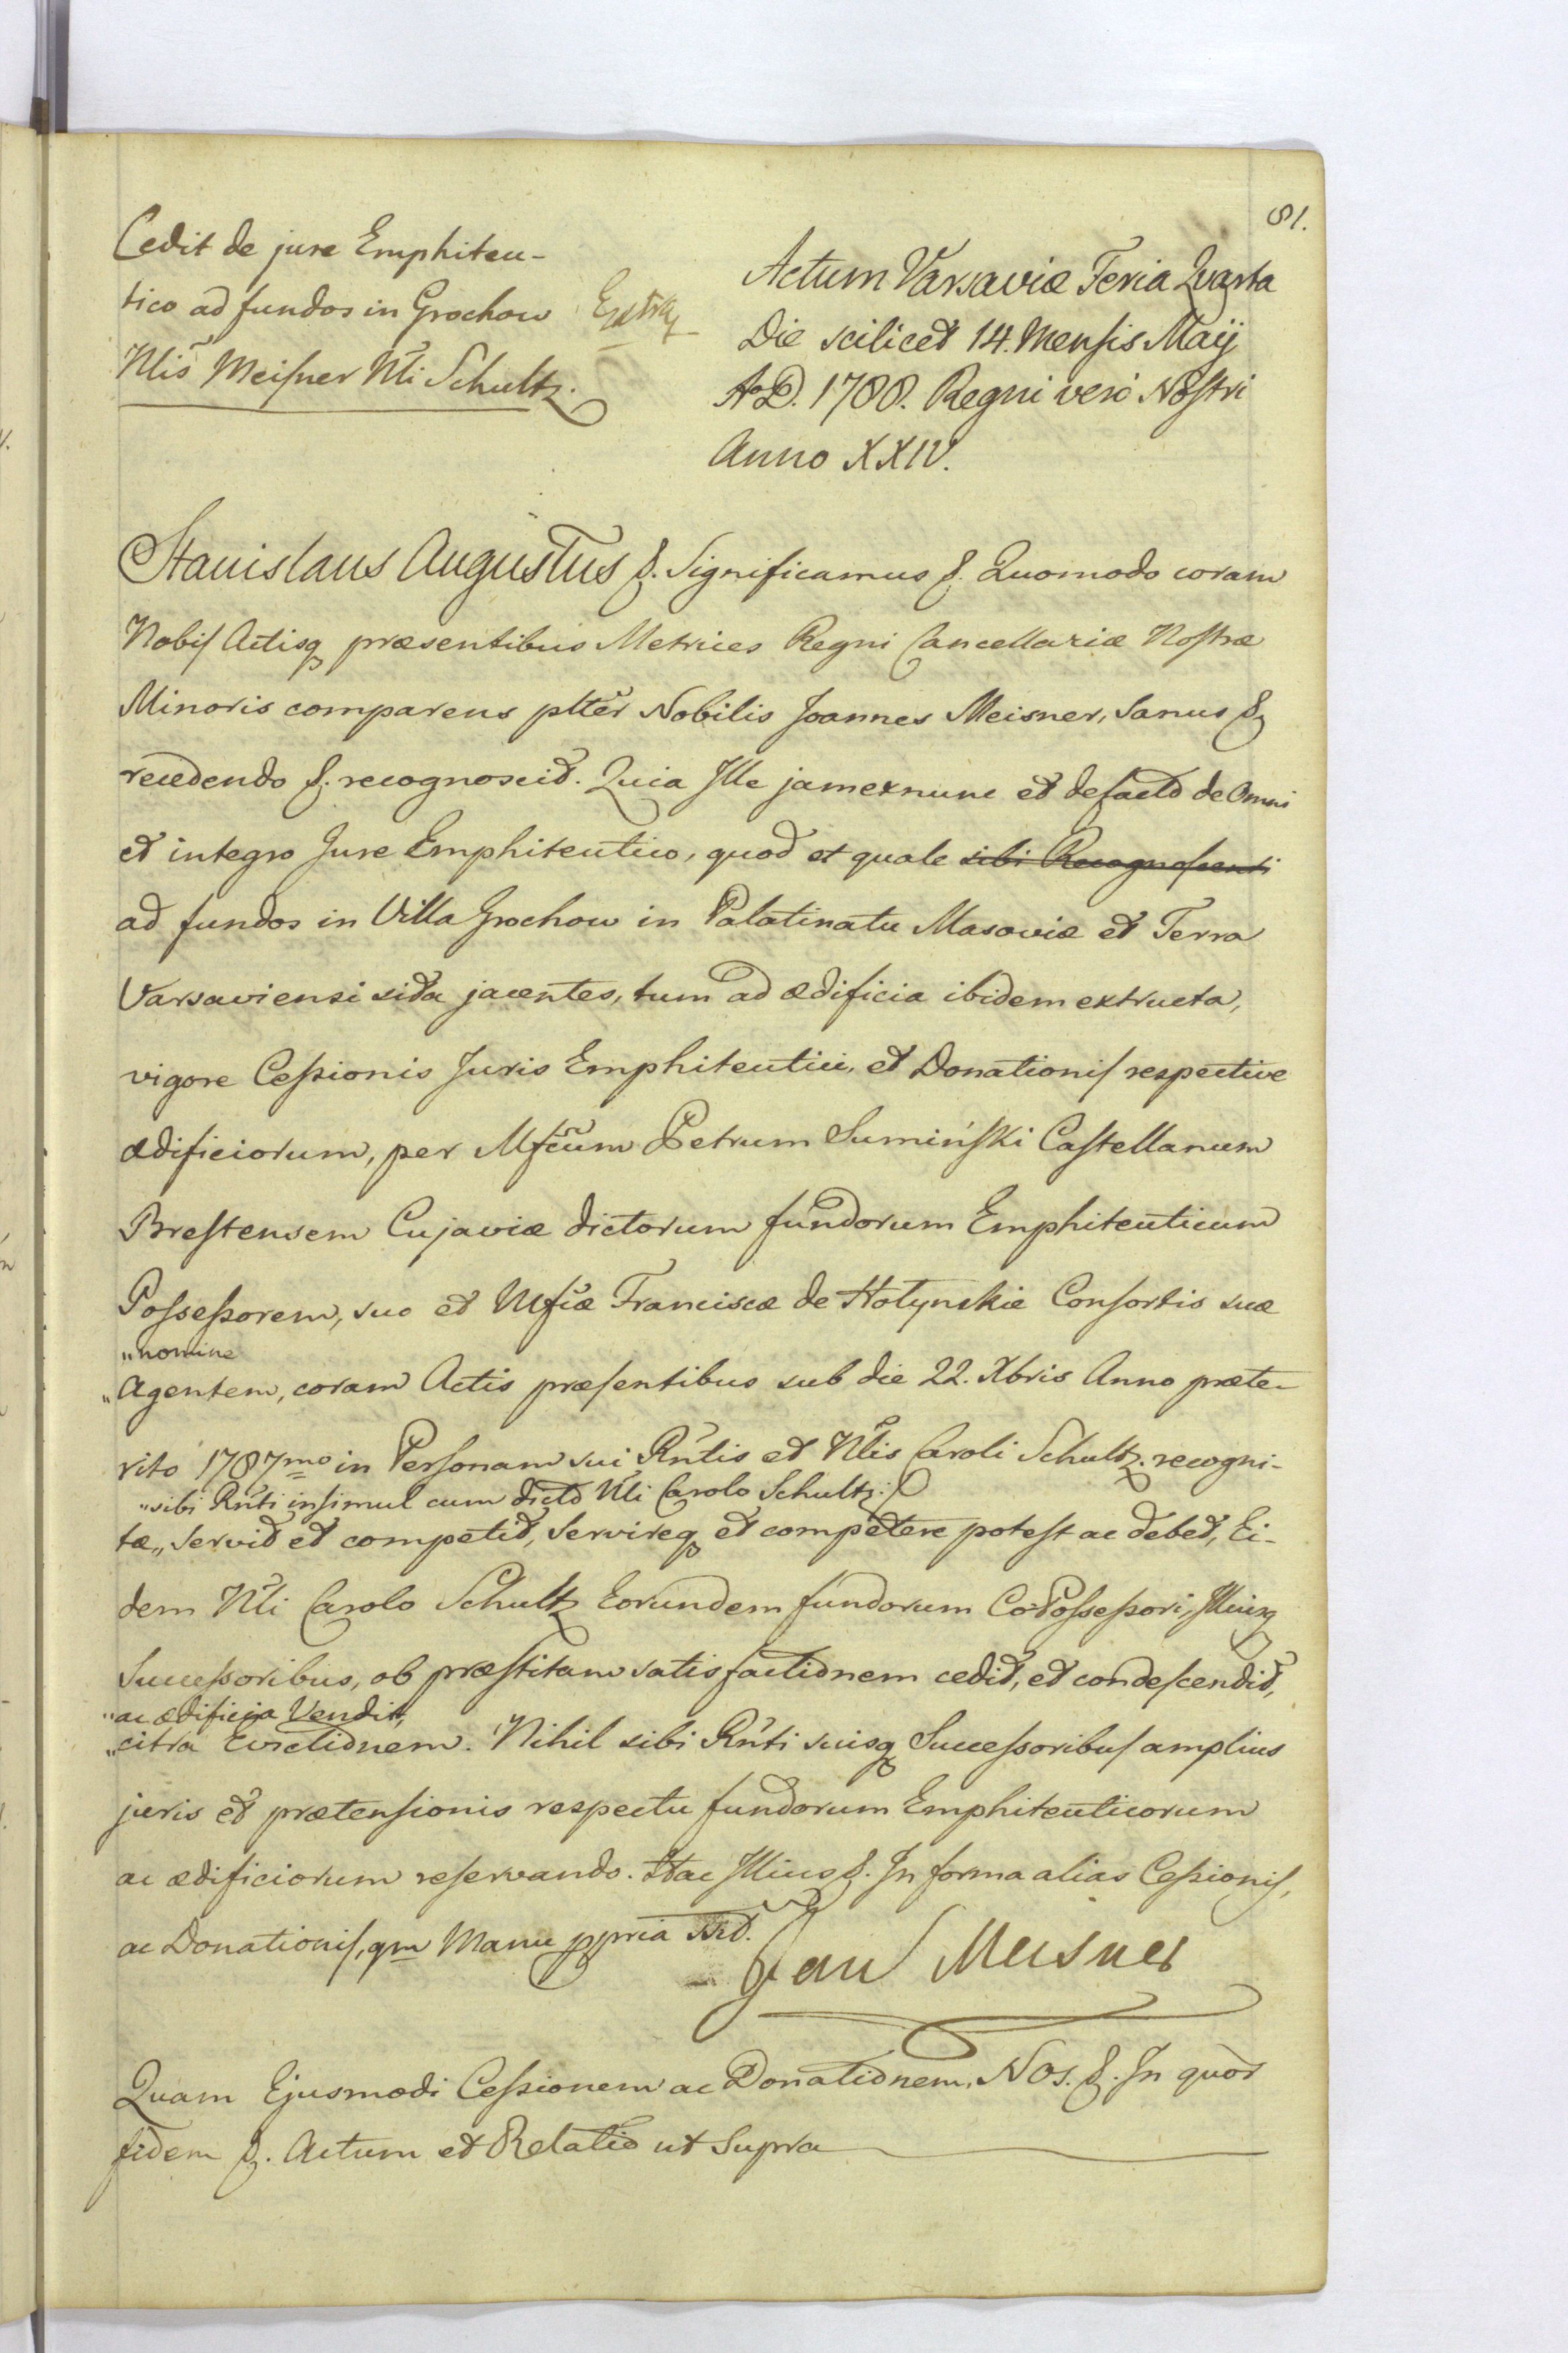 81.
Cedit de jure Emphiteu-
tico ad fundos in Grochow
Nlis Meisner Nli Schultz.
Extra
Actum Varsaviæ Feria Quarta
Die scilicet 14. Mensis Maij
A.D. 1788. Regni vero Nostri
Anno XXIV.
Stanislaus Augustus &. Significamus &. Quomodo coram
Nobis Actisq præsentibus Metrices Regni Cancellariæ Nostræ
Minoris comparens plter Nobilis Joannes Meisner, Sanus &
recedendo &. recognoscit. Quia Ille jamexnunc et defacto de Omni
et integro Jure Emphiteutico, quod et quale sibi Recognoscenti
ad fundos in Villa Grochow in Palatinatu Masoviæ et Terra
Varsaviensi sita jacentes, tum ad ædificia ibidem extructa,
vigore Cessionis Juris Emphiteutici, et Donationis respective
ædificiorum, per Mfcum Petrum Sumiński Castellanum
Brestensem Cujaviæ dictorum fundorum Emphiteuticum
Possessorem, suo et Mfcæ Franciscæ de Hołynskie Consortis suæ
"nomine
"Agentem, coram Actis præsentibus sub die 22. Xbris Anno præte-
rito 1787mo in Personam sui Rntis et Nlis Caroli Schultz recogni-
"sibi Rnti insimul cum dicto Nli Carolo Schultz:
tæ" servit et competit, Servireq et competere potest ac debet, Ei-
dem Nli Carolo Schultz Eorundem fundorum Co-Possessori, Illiusq
Successoribus, ob præstitam satisfactionem cedit, et condescendit,
"ac ædificia Vendit,
"citra Evictionem. Nihil sibi Rnti suisq Successoribus amplius
juris et prætensionis respectu fundorum Emphiteuticorum
ac ædificiorum reservando. Hac Illius &. In forma alias Cessionis,
ac Donationis, qm Manu ppria ssrt.
Jan Meisner
Quam Ejusmodi Cessionem ac Donationem. Nos. &. In quor
fidem &. Actum et Relatio ut Supra